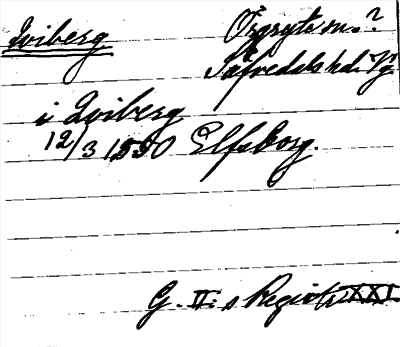 Qviberg
Örgryte sn. ?
Säfvedals hd. Vg
i Qviberg
12/3 1550 Elfsborg.
G. II: s Registr. XXI